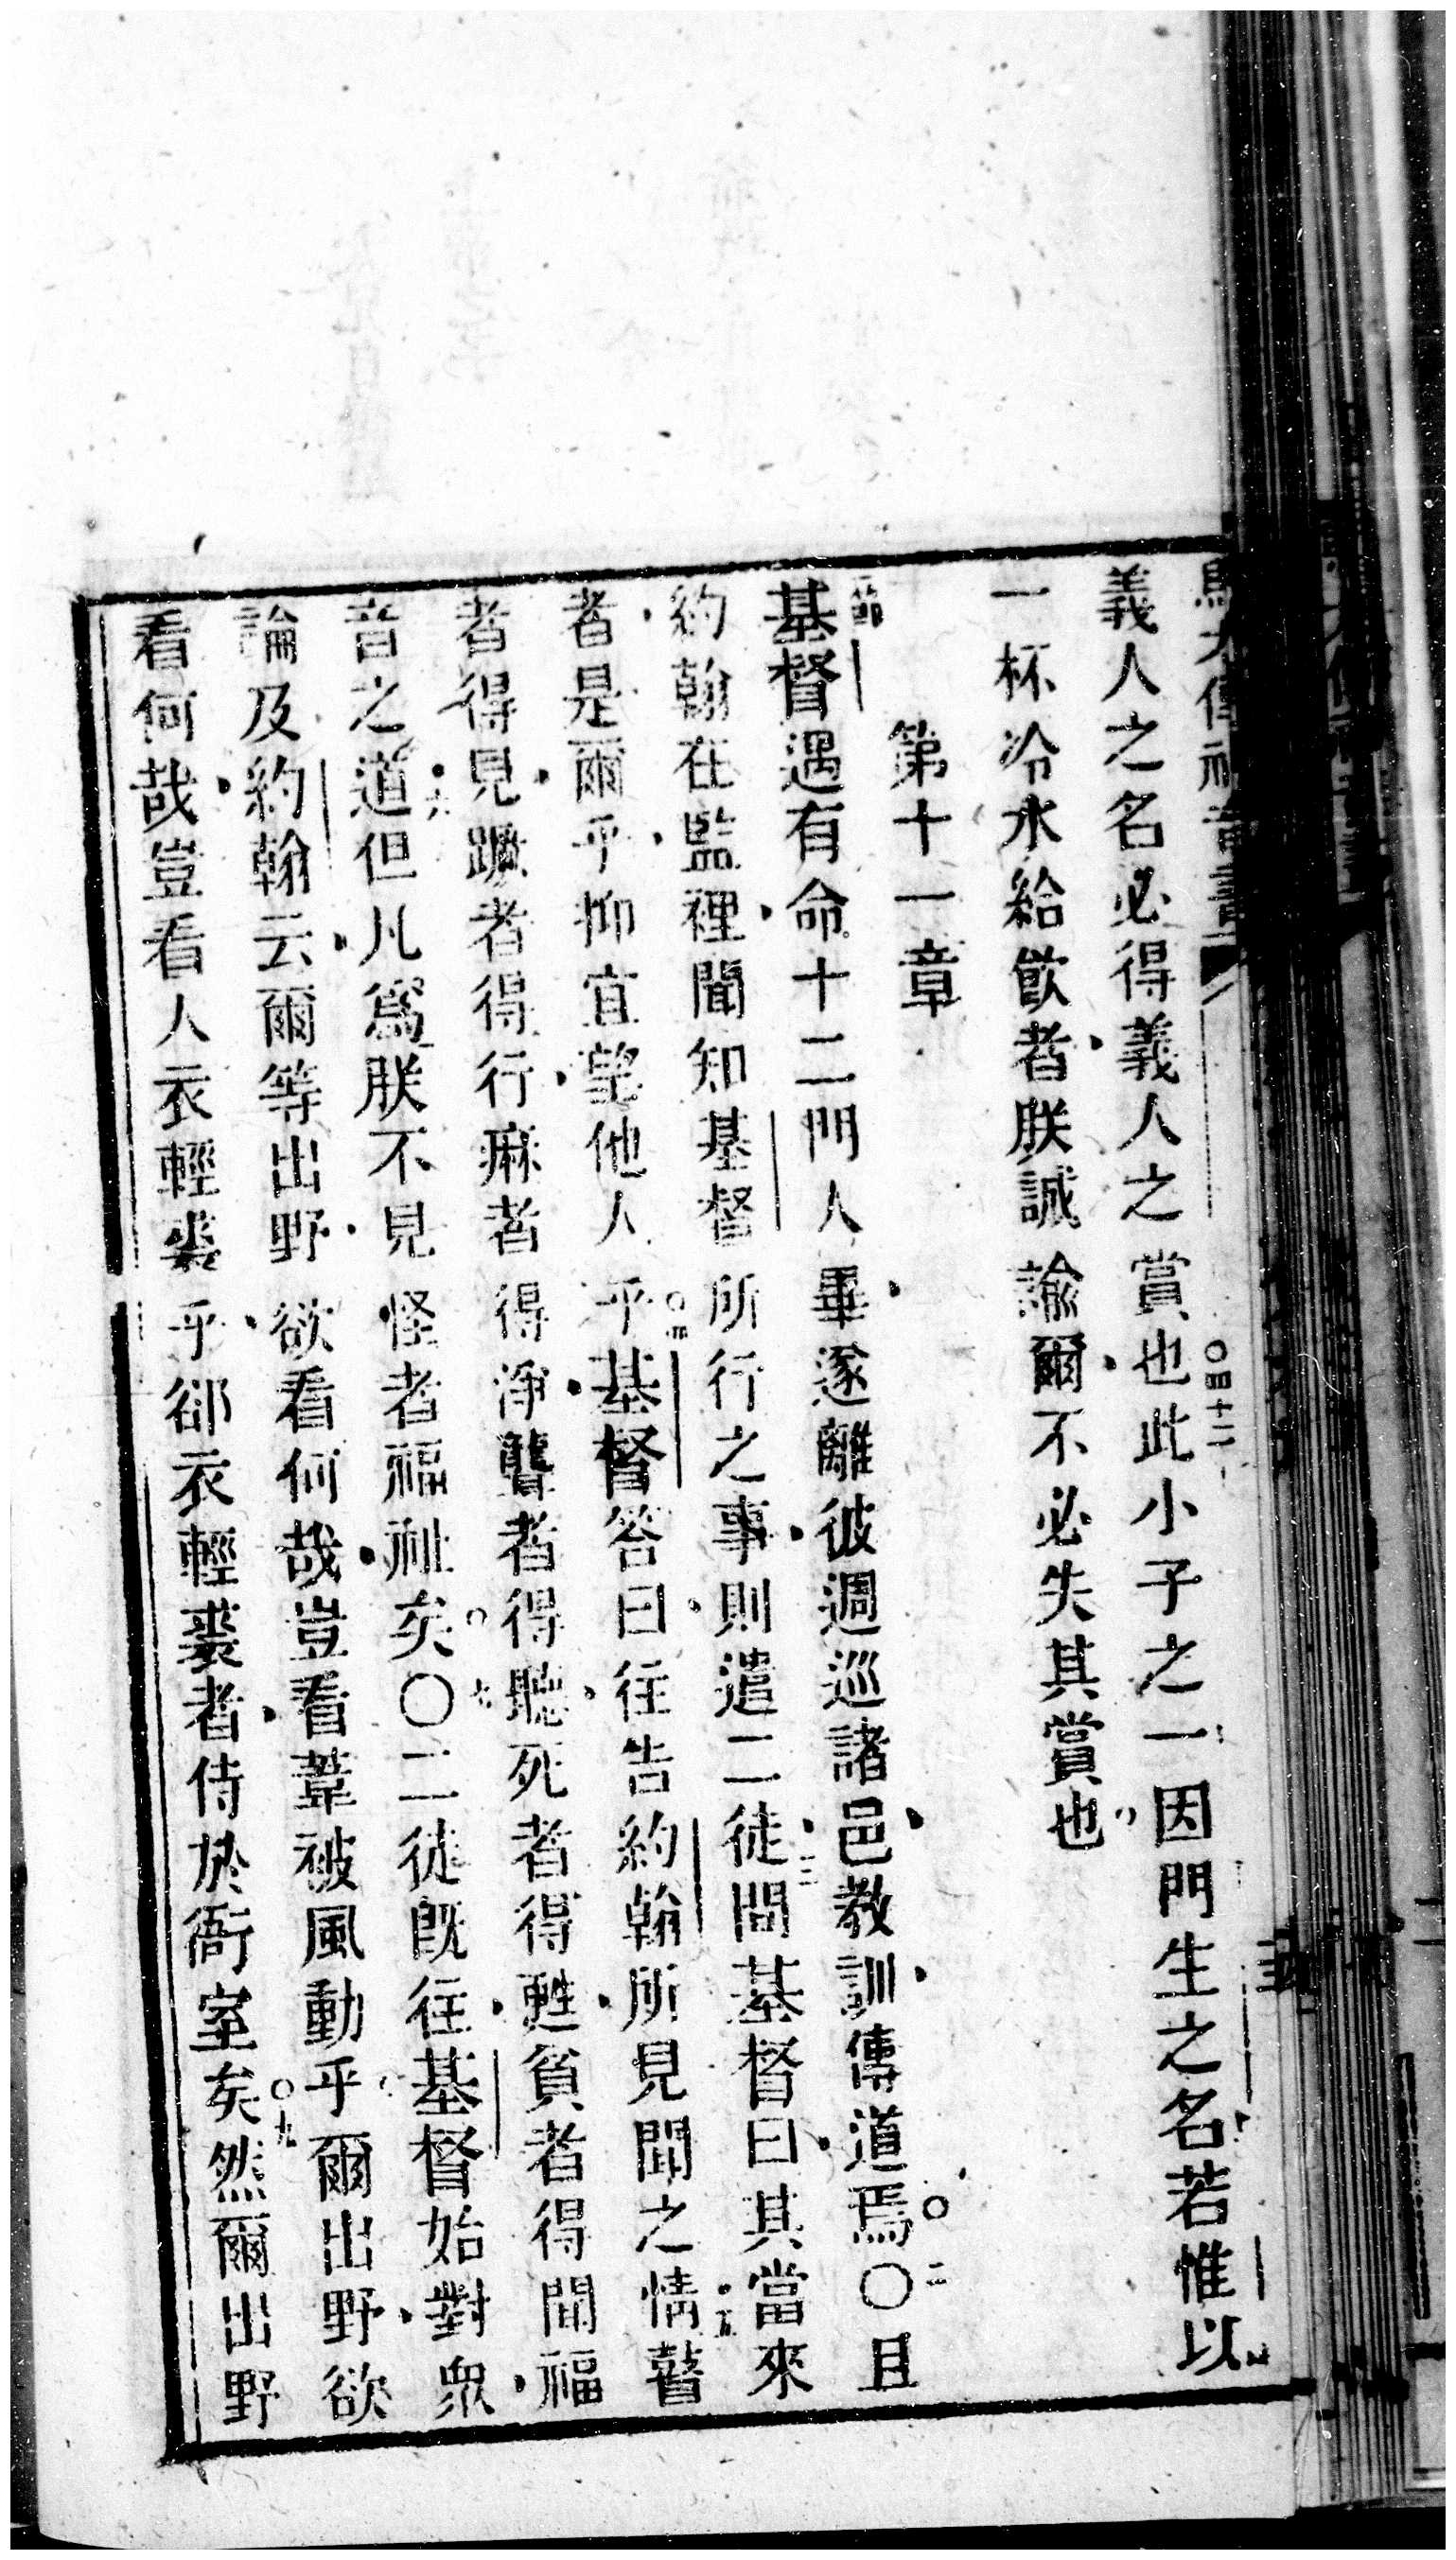 義人之名必得義人之賞也此小子之一因門生之名若惟以
一杯冷水給飲者朕誠諭爾不必失其賞也
第十一章
基督遇有命十二門人畢遂離彼週巡諸邑教訓傳道焉〇且
約翰在監裡聞知基督所行之事則遣二徒問基督曰其當來
者是爾乎抑宜望他人乎基督答曰往告約翰所見聞之情瞽
者得見蹶者得行痳者得淨聾者得聽死者得甦貧者得聞福
音之道但凡為朕不見怪者福祉矣〇二徒旣往基督始對眾
論及約翰云爾等出野欲看何哉豈看葦被風動乎爾出野欲
看何哉豈看人衣輕裘乎卻衣輕裘者侍於衙室矣然爾出野